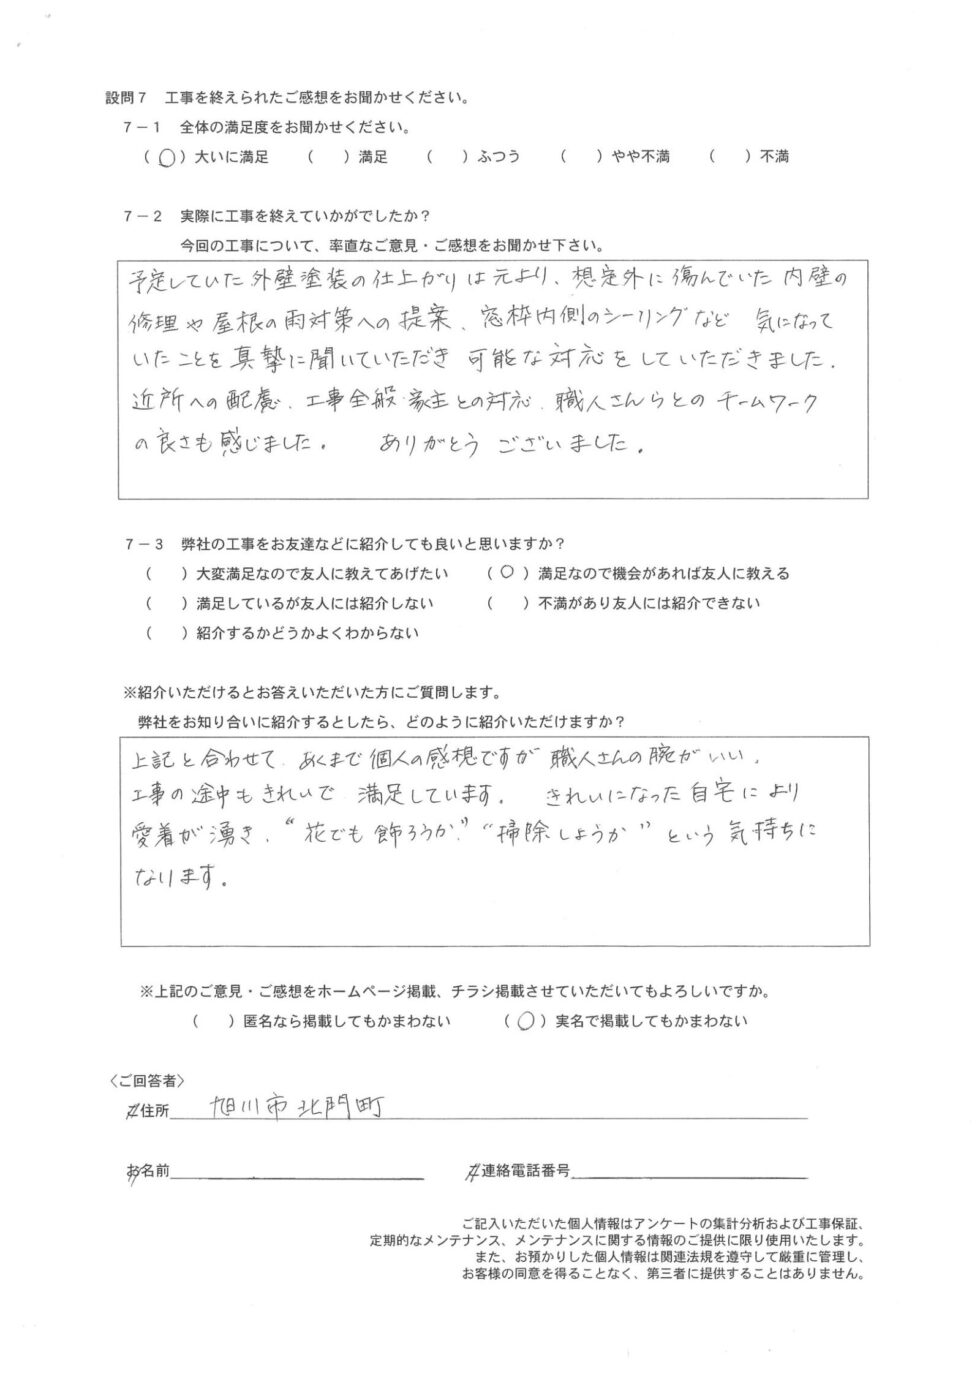 設問7 工事を終えられたご感想をお聞かせください。
7-1 全体の満足度をお聞かせください。
(○)大いに満足 ( )満足 ( )ふつう ( )やや不満 ( )不満
7-2 実際に工事を終えていかがでしたか?
今回の工事について、率直なご意見・ご感想をお聞かせ下さい。
予定していた外壁塗装の仕上がりは元より、想定外に傷んでいた内壁の
修理や屋根の雨対策への提案、窓枠内側のシーリングなど 気になって
いたことを真摯に聞いていただき 可能な対応をしていただきました。
近所への配慮、工事全般・家主との対応、職人さんらとのチームワーク
の良さも感じました。 ありがとうございました。
7-3 弊社の工事をお友達などに紹介しても良いと思いますか?
( )大変満足なので友人に教えてあげたい (○)満足なので機会があれば友人に教える
( )満足しているが友人には紹介しない ( )不満があり友人には紹介できない
( )紹介するかどうかよくわからない
※紹介いただけるとお答えいただいた方にご質問します。
弊社をお知り合いに紹介するとしたら、どのように紹介いただけますか?
上記と合わせて、あくまで個人の感想ですが 職人さんの腕がいい。
工事の途中もきれいで 満足しています。 きれいになった自宅により
愛着が湧き、“花でも飾ろうか”“掃除しようか”という気持ちに
なります。
※上記のご意見・ご感想をホームページ掲載、チラシ掲載させていただいてもよろしいですか。
( )匿名なら掲載してもかまわない (○)実名で掲載してもかまわない
〈ご回答者〉
ご住所 旭川市北門町
お名前 ご連絡電話番号
ご記入いただいた個人情報はアンケートの集計分析および工事保証、
定期的なメンテナンス、メンテナンスに関する情報のご提供に限り使用いたします。
また、お預かりした個人情報は関連法規を遵守して厳重に管理し、
お客様の同意を得ることなく、第三者に提供することはありません。